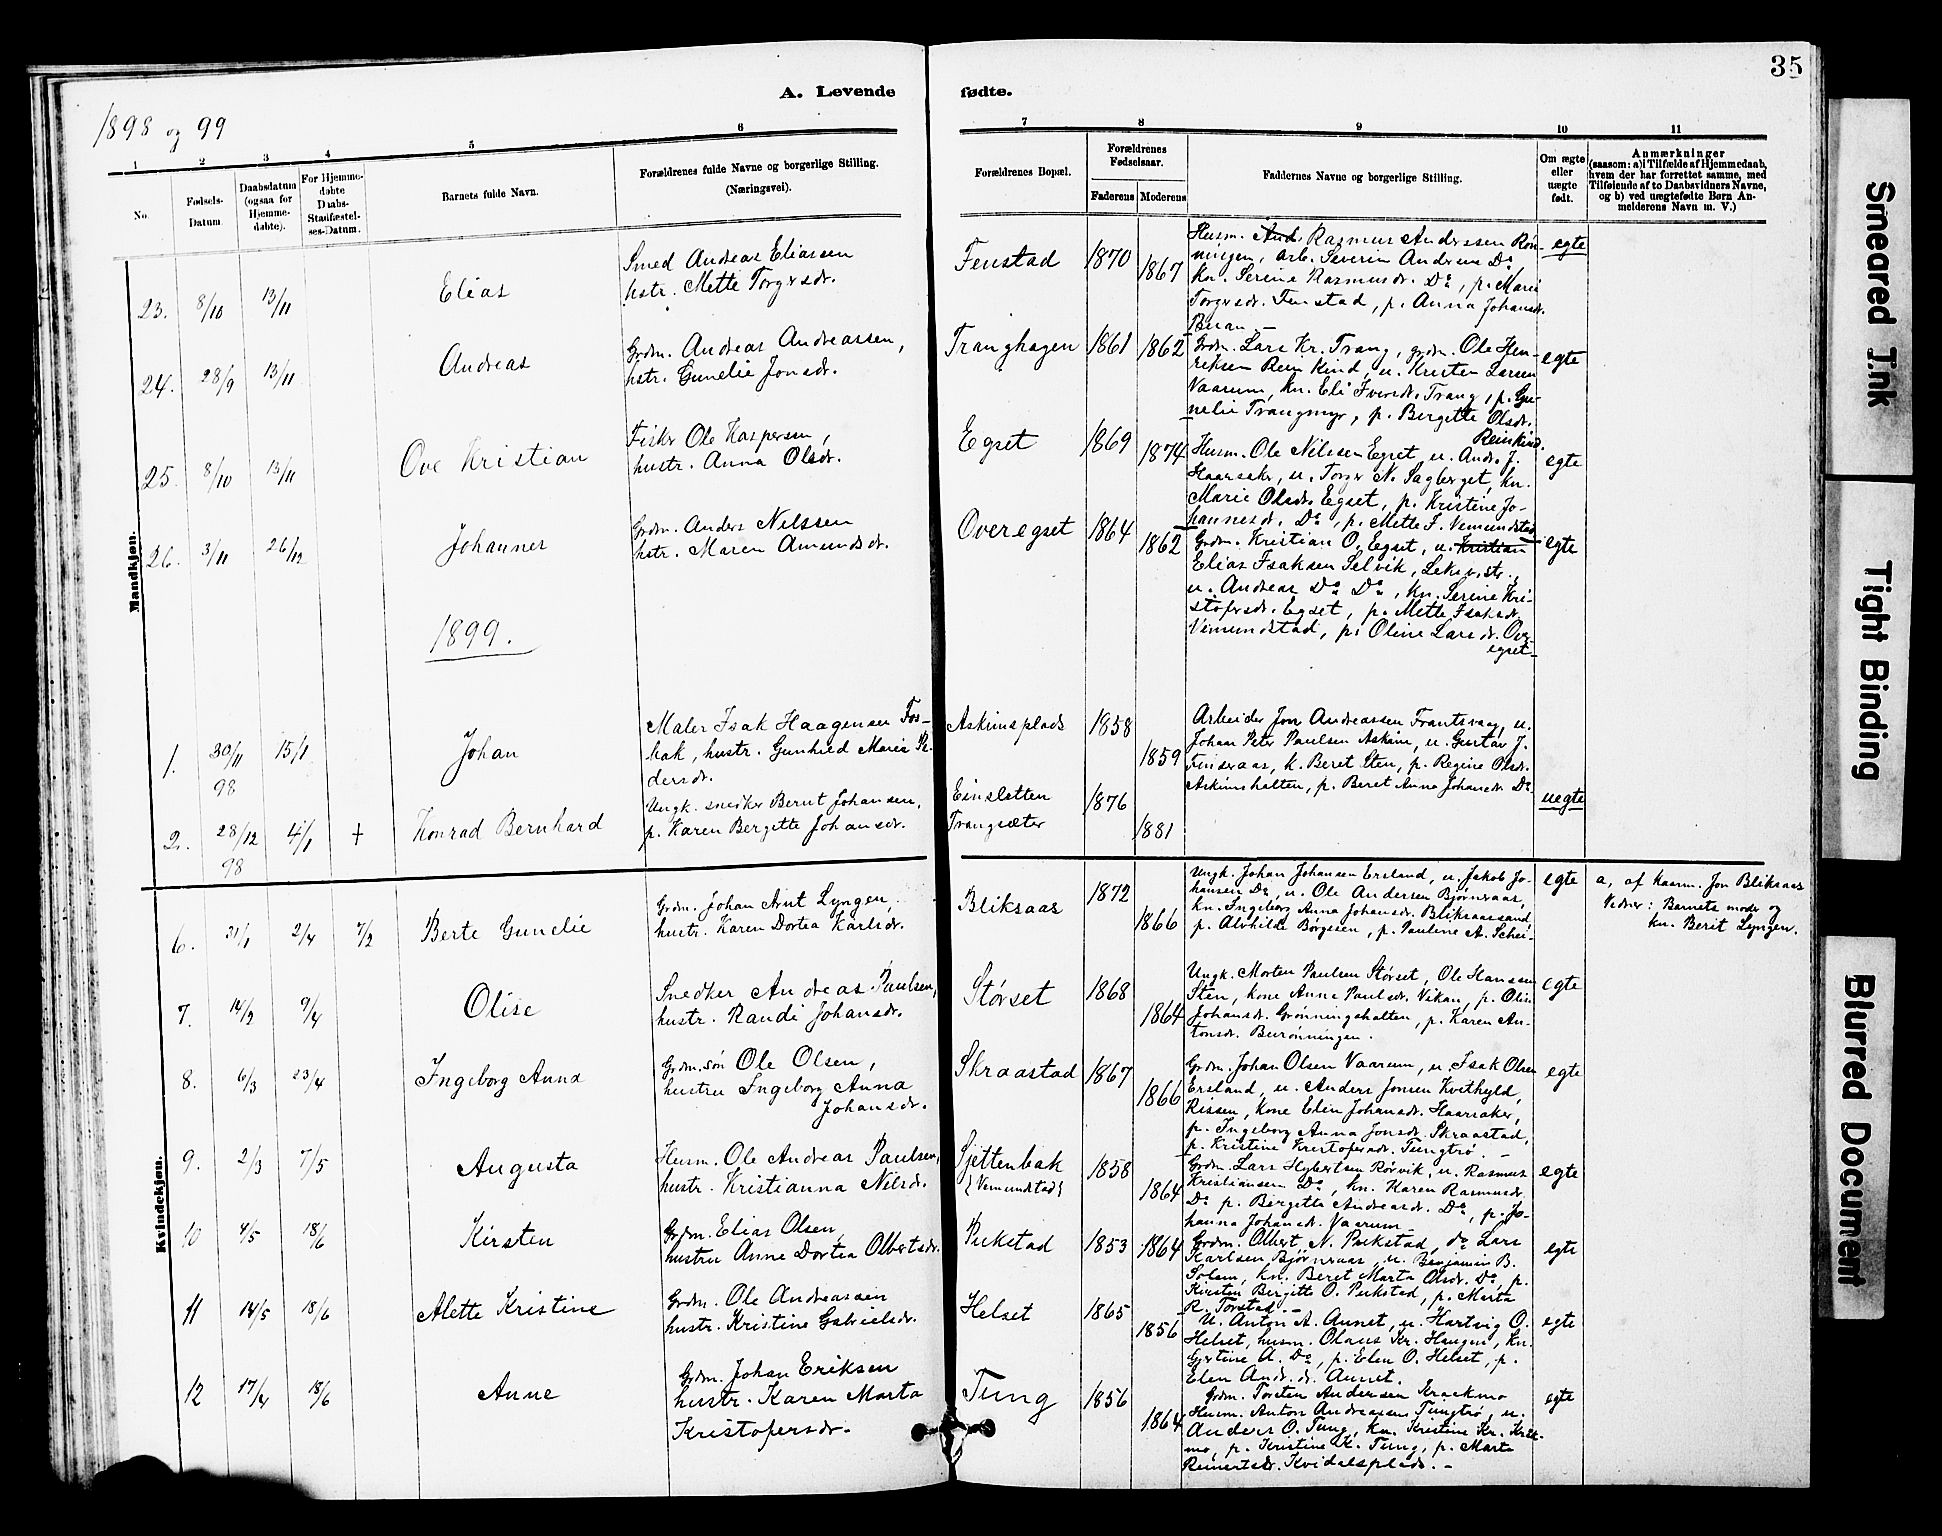 35
A. Levende fødte.
1898 og 99
1 2 3 4 5 6 7 8 9 10 11
No.
Fødsels-
Datum.
Daabsdatum
(ogsaa for
Hjemme-
døbte).
For Hjemme-
døbte
Daabs-
Stadfæstel-
ses-Datum.
Barnets fulde Navn.
Forældrenes fulde Navne og borgerlige Stilling.
(Næringsvei).
Forældrenes Bopæl.
Forældrenes
Fødselsaar.
Faderens Moderens
Faddernes Navne og borgerlige Stilling.
Om ægte
eller
uægte
født.
Anmærkninger
(saasom: a) i Tilfælde af Hjemmedaab,
hvem der har forrettet samme, med
Tilføiende af to Daabsvidners Navne,
og b) ved uægtefødte Børn An-
melderens Navn m. V.)
Mandkjøn.
23. 8/10 13/11 Elias
Smed Andreas Eliassen
hstr. Mette Torgersdr.
Fenstad 1870 1867
Husm. And. Rasmus Anderssen Røn-
ningen, arb. Severin Andersen Do
kn. Serine Rasmusdr. Do, p. Marie
Torgersdr. Fenstad, p. Anna Johansdr.
Buan.-
egte
24. 28/9 13/11 Andreas
Grdm. Andreas Andreassen,
hstr. Gunelie Jonsdr.
Tranghagen 1861 1862
Grdm. Lars Kr. Trang, grdm. Ole Hen-
riksen Rein kind, u. Kristen Larsen
Vaarum, kn. Eli Iversdr. Trang, p. Gu-
nelie Trangmyr, p. Bergitte Olsdr.
Reinkind.
egte
25. 8/10 13/11 Ove Kristian
Fisker Ole Kaspersen,
hustr. Anna Olsdr.
Egset 1869 1874
Husm. Ole Nilssen Egset, u. Andr. J.
Haarsaker, u. Torger N. Sagberget, kn.
Marie Olsdr. Egset, p. Kristine Jo-
hannesdr. Do, p. Mette I. Vemundstad
egte
26. 3/11 26/12 Johannes
Grdm. Anders Nilssen
hstr. Maren Amundsdr.
Overegset 1864 1862
Grdm. Kristian O. Egset, u. Kristian
Elias Isaksen Selvik, Leksv. str.,
u. Andreas Do Do, kn. Serine Kri-
stofersdr. Egset, p. Mette Isaksdr.
Vemundstad, p. Oline Larsdr. Over-
egset-
egte
1899.
1. 30/11 98 15/1 Johan
Maler Isak Haagensen Fos-
bak, hustr. Gunhild Marie Pe-
dersdr.
Askimsplads 1858 1859
Arbeider Jon Andreassen Frantsvaag, u.
Johan Peter Paulsen Askim, u. Gustav J.
Finseraas, k. Beret Sten, p. Regine Olsdr.
Askimshatten, p. Beret Anna Johansdr. Do
2. 28/12 98 4/1 + Konrad Bernhard
Ungk. snedker Bernt Johansen,
p. Karen Bergette Johansdr.
Einsletten
Trangsæter 1876 1881
uegte
Kvindekjøn.
6. 31/1 2/4 7/2 Berte Gunelie
Grdm. Johan Arnt Lyngen,
hustr. Karen Dortea Karlsdr.
Bliksaas 1872 1866
Ungk. Johan Johansen Ersland, u. Jakob Jo-
hansen Do, u. Ole Andersen Bjørnraas,
kn. Ingeborg Anna Johansdr. Bliksaassand,
p. Alvhilde Børgesen, p. Pauline A. Schei-
egte
a, af kaarm. Jon Bliksaas
Vidner: Barnets moder og
kn. Berit Lyngen.
7. 14/2 9/4 Olise
Snedker Andreas Paulsen,
hustr. Randi Johansdr.
Størset 1868 1864
Ungk. Morten Paulsen Størset, Ole Hanssen
Sten, kone Anne Paulsdr. Vikan, p. Olin
Johansdr. Grønningshatten, p. Karen An-
tonsdr. Burønningen.
egte
8. 6/3 23/4 Ingeborg Anna
Grdm.søn Ole Olsen,
hustru Ingeborg Anna
Johansdr.
Skraastad 1867 1866
Grdm. Johan Olsen Vaarum, u. Isak Olsen
Ersland, u. Anders Jonsen Kvithyld,
Rissen, kone Elin Johansdr. Haarsaker,
p. Ingeborg Anna Jonsdr. Skraastad,
p. Kristine Kristofersdr. Tungtrø.-
egte
9. 2/3 7/5 Augusta
Husm. Ole Andreas Paulsen,
hustr. Kristianna Nilsdr.
Sjettenbak
{Vemundstad} 1858 1864
Grdm. Lars Hybertsen Rørvik, u. Rasmus
Kristiansen Do, kn. Karen Rasmusdr.
Do p. Bergitte Andreasdr. Do, p. Jo-
hanna Johansdr. Vaarum-
egte
10 4/5 18/6 Kirsten
Grdm. Elias Olsen,
hustru Anne Dortea Olbertsdr.
Pukstad 1853 1864
Grdm. Olbert N. Pukstad, do Lars
Karlsen Bjørnraas, u. Benjamin B.
Solem, kn. Beret Marta Olsdr. Do, p.
Kirsten Bergitte O. Pukstad, p. Marta
R. Torstad.-
egte
11 14/5 18/6 Alette Kristine
Grdm. Ole Andreassen
hustr. Kristine Gabrielsdr.
Helset 1865 1856
U. Anton A. Aunet, u. Hartvig O.
Helset, husm. Olaus Kr. Haugen, kn.
Gjertine A. Do, p. Elen O. Helset, p.
Elen Andr. dr. Aunet.
egte
12 17/4 18/6 Anne
Grdm. Johan Eriksen
hustr. Karen Marta
Kristofersdr.
Tung 1856 1864
Grdm. Torsten Andersen Krackmo
Husm. Anton Andreassen Tungtrø, u.
Anders O. Tung, kn. Kristine Kr. Krak-
mo, p. Kristine K. Tung, p. Marta
Reinertsdr. Kvidalsplads.-
egte
Smeared Ink
Tight Binding
Blurred Document